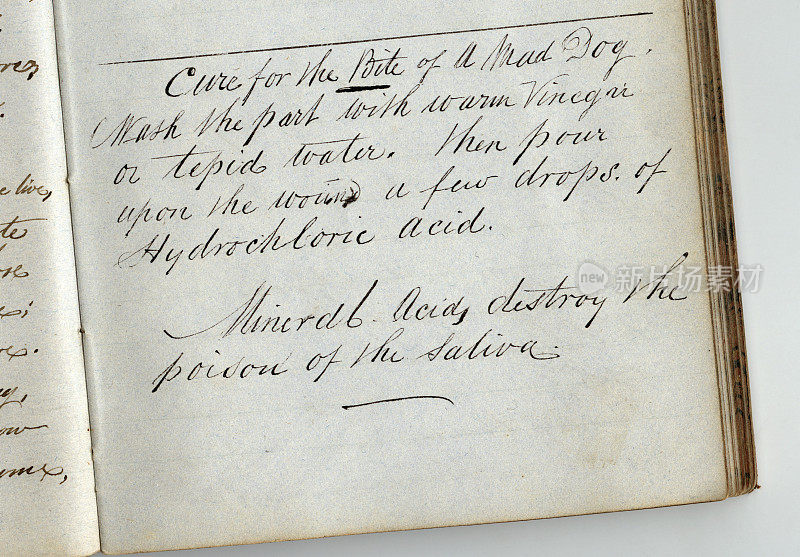 re,
.
e live,
te
ore
;
.
,
ow
,
Cure for the Bite of a Mad Dog.
Wash the part with warm Vinegar
or tepid water. Then pour
upon the wound a few drops. of
Hydrochloric acid.
Mineral Acids destroy the
poison of the saliva.
new 新片场素材